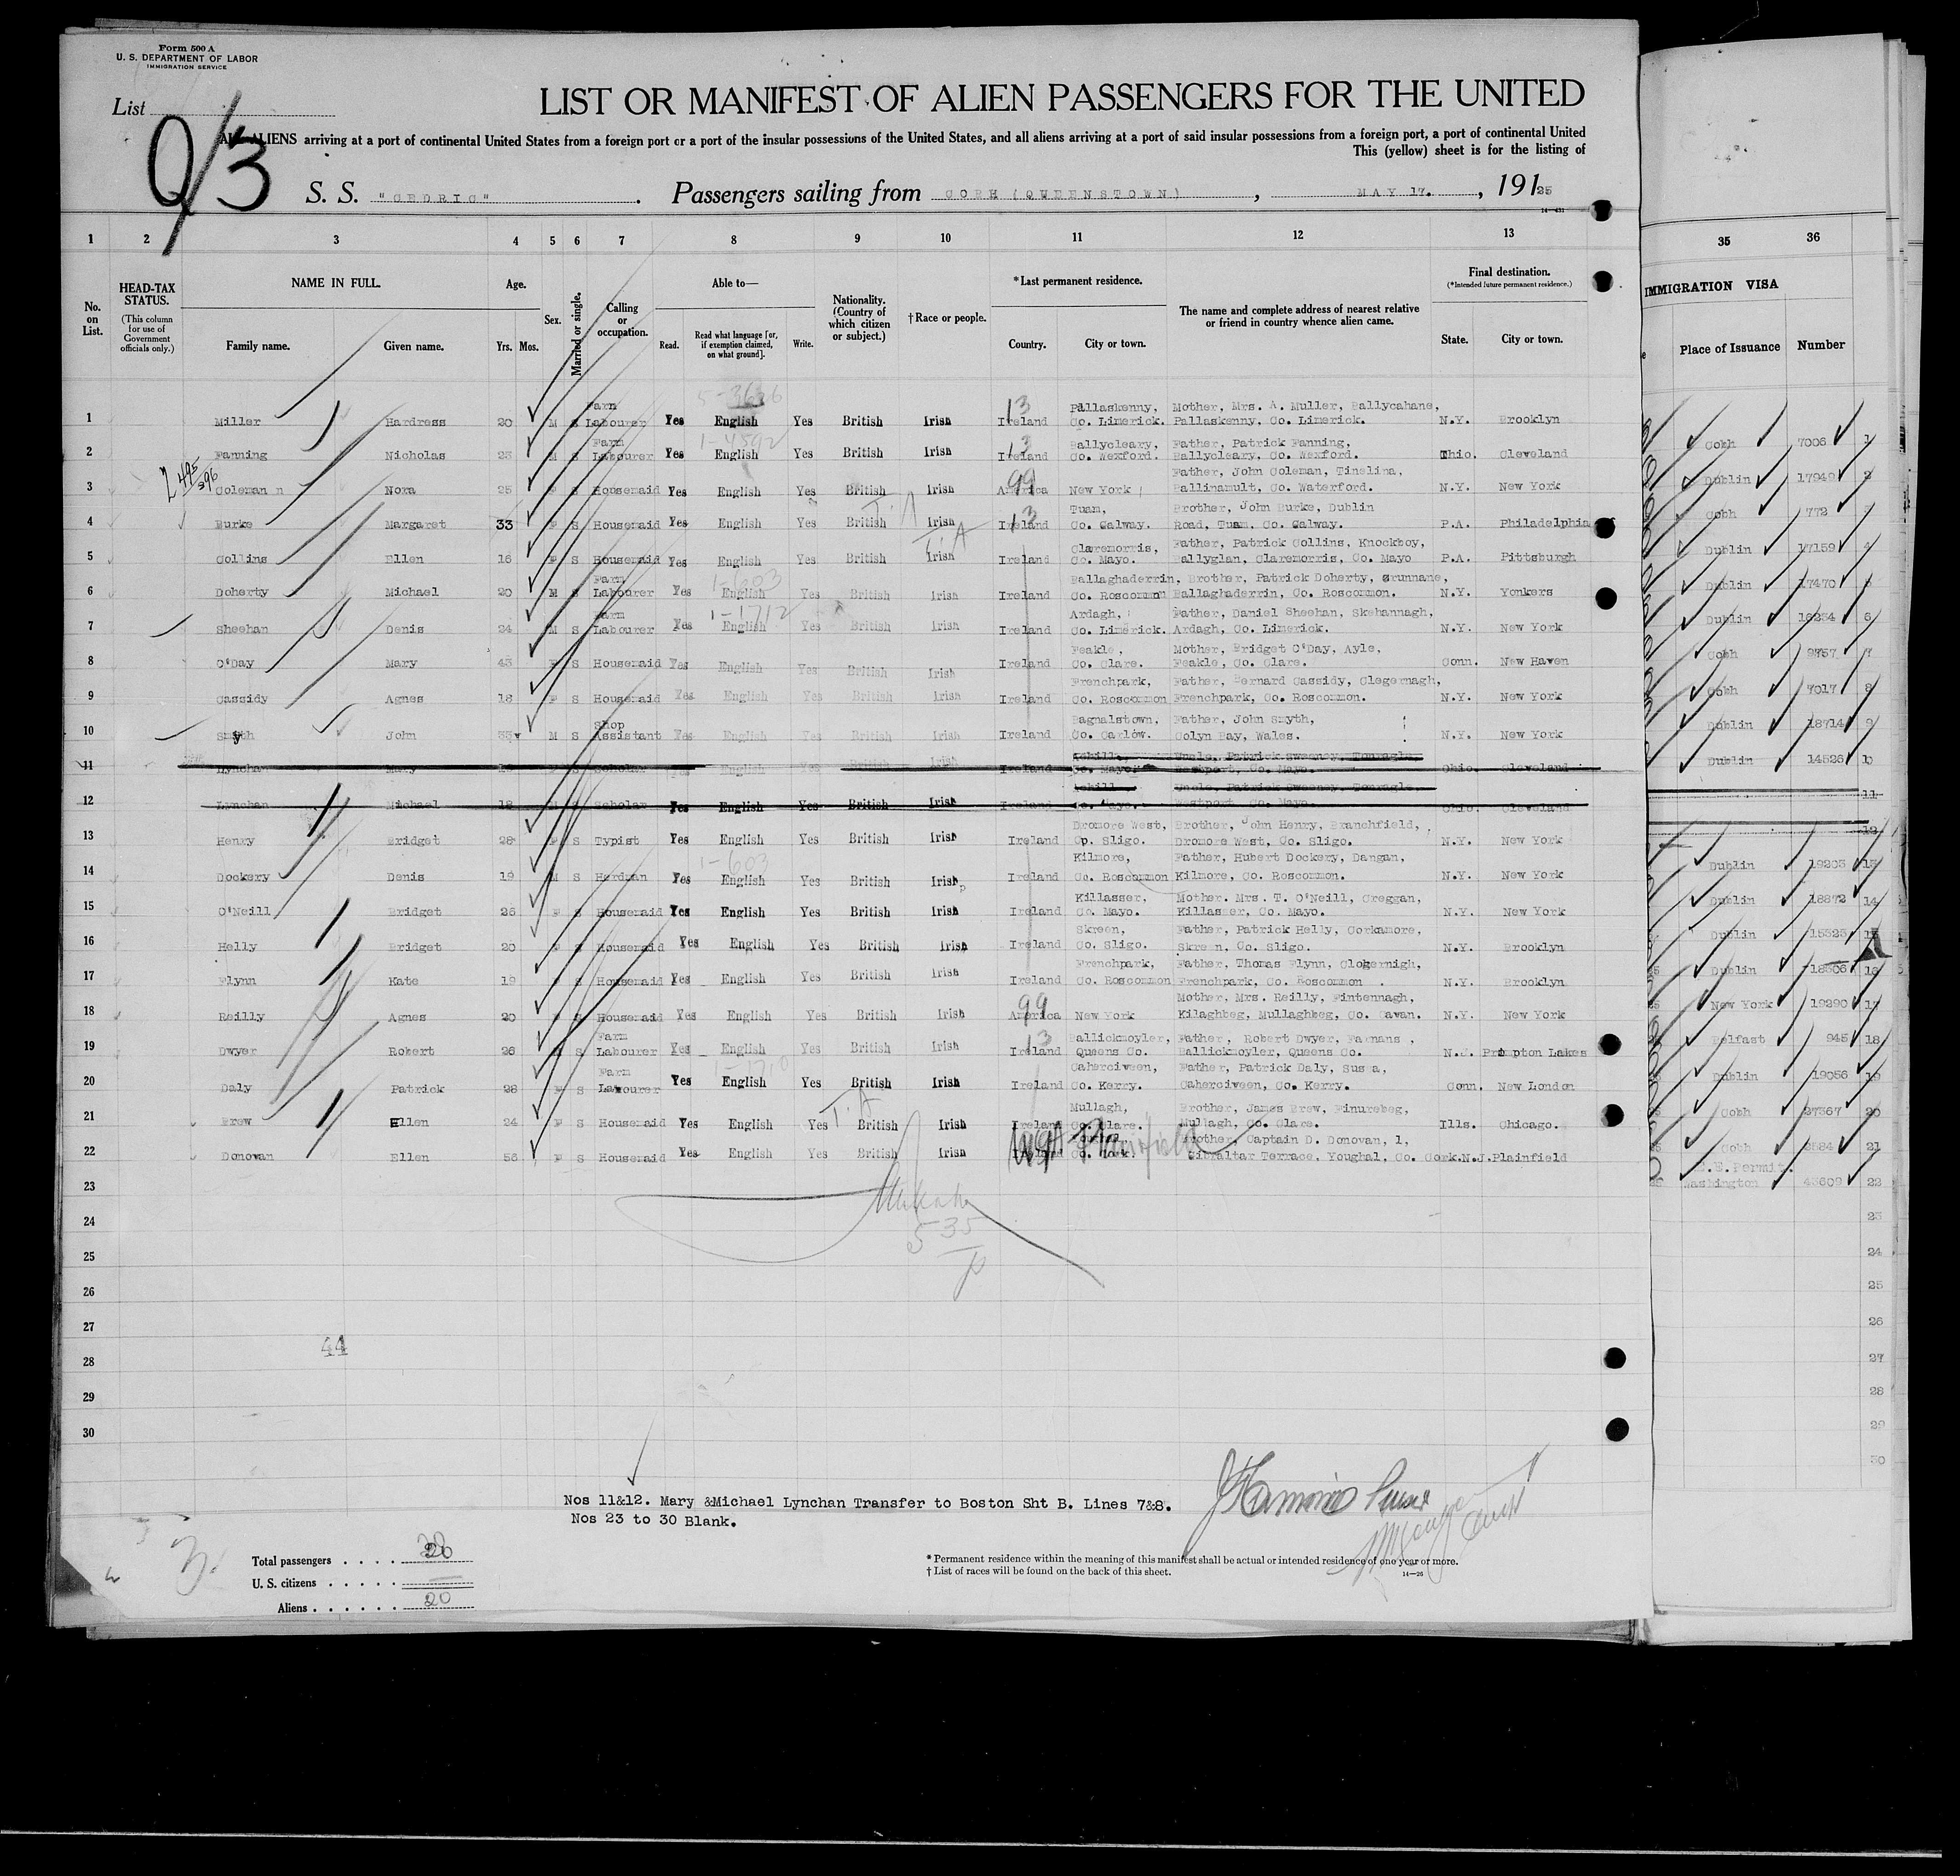 Form 500 A
U. S. DEPARTMENT OF LABOR
IMMIGRATION SERVICE
List
Q/3
LIST OR MANIFEST OF ALIEN PASSENGERS FOR THE UNITED
ALL ALIENS arriving at a port of continental United States from a foreign port or a port of the insular possessions of the United States, and all aliens arriving at a port of said insular possessions from a foreign port, a port of continental United
This (yellow) sheet is for the listing of
S. S. "CEDRIC". Passengers sailing from COBH (QUEENSTOWN), MAY 17., 1925
1 2 3 4 5 6 7 8 9 10 11 12 13 35 36
No. on List. HEAD-TAX STATUS. (This column for use of Government officials only.) NAME IN FULL. Family name. Given name. Age. Yrs. Mos. Sex. Married or single. Calling or occupation. Able to— Read. Read what language [or, if exemption claimed, on what ground]. Write. Nationality. (Country of which citizen or subject.) †Race or people. *Last permanent residence. Country. City or town. The name and complete address of nearest relative or friend in country whence alien came. Final destination. (*Intended future permanent residence.) State. City or town.
IMMIGRATION VISA
Place of Issuance Number
1 Miller Hardress 20 M S Farm Labourer Yes English Yes British Irish Ireland Pallaskenny, Co. Limerick. Mother, Mrs. A. Muller, Ballycahane, Pallaskenny, Co. Limerick. N.Y. Brooklyn Cobh 7006 1
2 Fanning Nicholas 23 M S Farm Labourer Yes English Yes British Irish Ireland Ballycleary, Co. Wexford. Father, Patrick Fanning, Ballycleary, Co. Wexford. Ohio. Cleveland Dublin 17949 2
3 Coleman Nora 25 F S Housemaid Yes English Yes British Irish America New York Father, John Coleman, Tinelina, Ballinamult, Co. Waterford. N.Y. New York Cobh 772
4 Burke Margaret 33 F S Housemaid Yes English Yes British Irish Ireland Tuam, Co. Galway. Brother, John Burke, Dublin Road, Tuam, Co. Galway. P.A. Philadelphia Dublin 17159 4
5 Collins Ellen 16 F S Housemaid Yes English Yes British Irish Ireland Claremorris, Co. Mayo. Father, Patrick Collins, Knockboy, Ballyglan, Claremorris, Co. Mayo P.A. Pittsburgh Dublin 17470 5
6 Doherty Michael 20 M S Farm Labourer Yes English Yes British Irish Ireland Ballaghaderrin, Co. Roscommon Brother, Patrick Doherty, Grunnane, Ballaghaderrin, Co. Roscommon. N.Y. Yonkers Dublin 16234 6
7 Sheehan Denis 24 M S Farm Labourer Yes English Yes British Irish Ireland Ardagh, Co. Limerick. Father, Daniel Sheehan, Skehannagh, Ardagh, Co. Limerick. N.Y. New York Cobh 7
8 O'Day Mary 43 F S Housemaid Yes English Yes British Irish Ireland Feakle, Co. Clare. Mother, Bridget O'Day, Ayle, Feakle, Co. Clare. Conn. New Haven Cobh 7017 8
9 Cassidy Agnes 18 F S Housemaid Yes English Yes British Irish Ireland Frenchpark, Co. Roscommon Father, Bernard Cassidy, Clegernagh, Frenchpark, Co. Roscommon. N.Y. New York Dublin 18714 9
10 Smyth John M S Shop Assistant Yes English Yes British Irish Ireland Bagnalstown, Co. Carlow. Father, John Smyth, Colyn Bay, Wales. N.Y. New York Dublin 14526 10
11 Lynchan Mary Scholar English Yes British Irish Ireland Achill, Co. Mayo Uncle, Patrick Sweeney, Westport, Co. Mayo. Ohio. Cleveland 11
12 Lynchan Michael 18 M S Scholar Yes English Yes British Irish Ireland Achill Co. Mayo. Uncle, Patrick Sweeney, Westport, Co. Mayo. Ohio. Cleveland 12
13 Henry Bridget 28 F S Typist Yes English Yes British Irish Ireland Dromore West, Cp. Sligo. Brother, John Henry, Branchfield, Dromore West, Co. Sligo. N.Y. New York Dublin 19203 13
14 Dockery Denis 19 M S Herdman Yes English Yes British Irish Ireland Kilmore, Co. Roscommon Father, Hubert Dockery, Dangan, Kilmore, Co. Roscommon. N.Y. New York Dublin 18872 14
15 O'Neill Bridget 26 F S Housemaid Yes English Yes British Irish Ireland Killasser, Co. Mayo. Mother. Mrs. T. O'Neill, Creggan, Killasser, Co. Mayo. N.Y. New York Dublin 15323 15
16 Helly Bridget 20 F S Housemaid Yes English Yes British Irish Ireland Skreen, Co. Sligo. Father, Patrick Helly, Corkamore, Skreen, Co. Sligo. N.Y. Brooklyn Dublin 18506 16
17 Flynn Kate 19 F S Housemaid Yes English Yes British Irish Ireland Frenchpark, Co. Roscommon Father, Thomas Flynn, Clogernigh, Frenchpark, Co. Roscommon. N.Y. Brooklyn New York 19290 17
18 Reilly Agnes 20 F S Housemaid Yes English Yes British Irish America New York Mother, Mrs. Reilly, Fintennagh, Kilaghbeg, Mullaghbeg, Co. Cavan. N.Y. New York Belfast 945 18
19 Dwyer Robert 26 M S Farm Labourer Yes English Yes British Irish Ireland Ballickmoyler, Queens Co. Father, Robert Dwyer, Farnans, Ballickmoyler, Queens Co. N.J. Prompton Lakes Dublin 19056 19
20 Daly Patrick 28 S Farm Labourer Yes English Yes British Irish Ireland Caherciveen, Co. Kerry. Father, Patrick Daly, Caherciveen, Co. Kerry. Conn. New London Cobh 20
21 Brew Ellen 24 F S Housemaid Yes English Yes British Irish Ireland Mullagh, Co. Clare. Brother, James Brew, Finurebeg, Mullagh, Co. Clare. Ills. Chicago. Cobh 21
22 Donovan Ellen 56 F S Housemaid Yes English Yes British Irish Co. Cork. Brother, Captain D. Donovan, 1, Gibraltar Terrace, Youghal, Co. Cork. N.J. Plainfield Permit. Washington 43609 22
23 23
24 24
25 25
26 26
27 27
28 28
29 29
30 30
44
Nos 11&12. Mary &Michael Lynchan Transfer to Boston Sht B. Lines 7&8.
Nos 23 to 30 Blank.
Total passengers
U. S. citizens
Aliens 20
* Permanent residence within the meaning of this manifest shall be actual or intended residence of one year or more.
† List of races will be found on the back of this sheet.
14—26